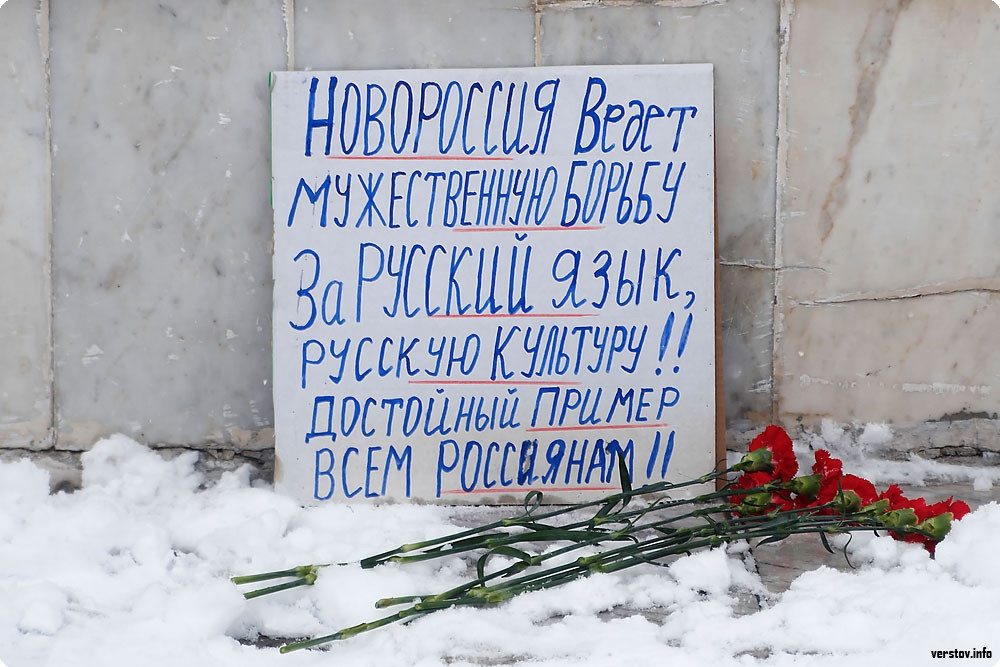 НОВОРОССИЯ Ведет
МУЖЕСТВЕННУЮ БОРЬБУ
За РУССКИЙ ЯЗЫК,
РУССКУЮ КУЛЬТУРУ!!
ДОСТОЙНЫЙ ПРИМЕР
ВСЕМ РОССИЯНАМ!!
verstov.info